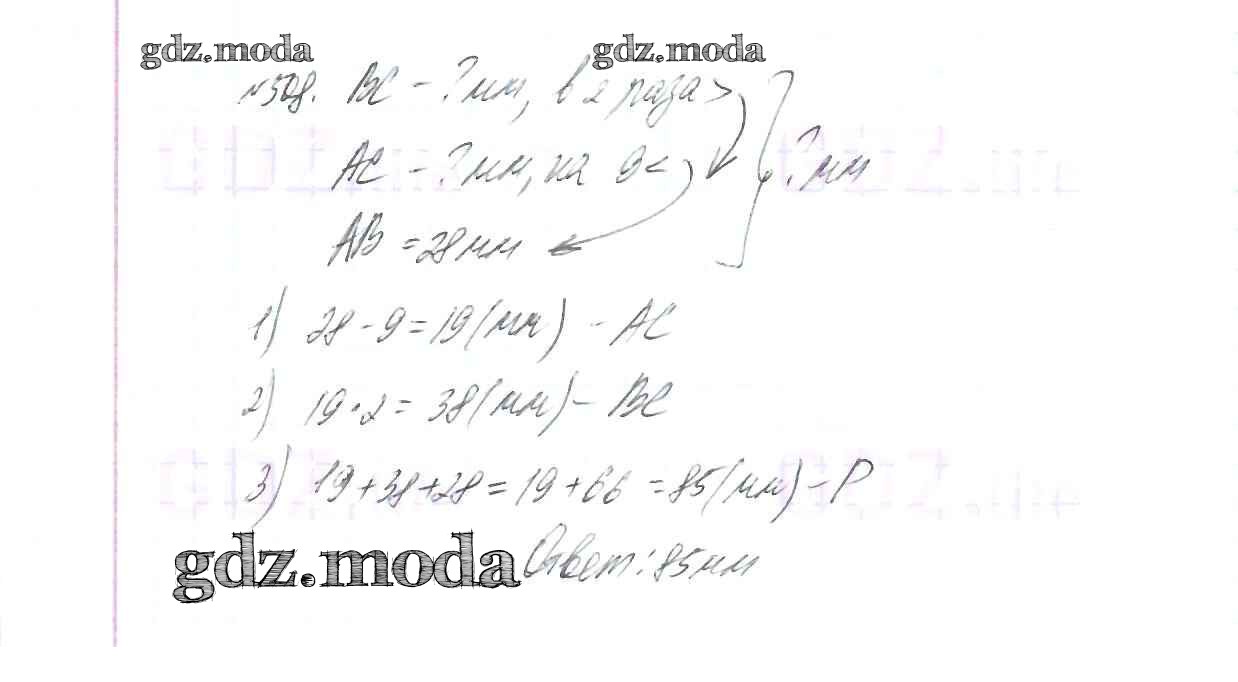 gdz.moda gdz.moda
№508. ВС – ? мм, в 2 раза >
АС – ? мм, на 9 < ? мм
АВ = 28 мм
1) 28 - 9 = 19 (мм) – АС
2) 19 · 2 = 38 (мм) – ВС
3) 19 + 38 + 28 = 19 + 66 = 85 (мм) – Р
gdz.moda Ответ: 85 мм